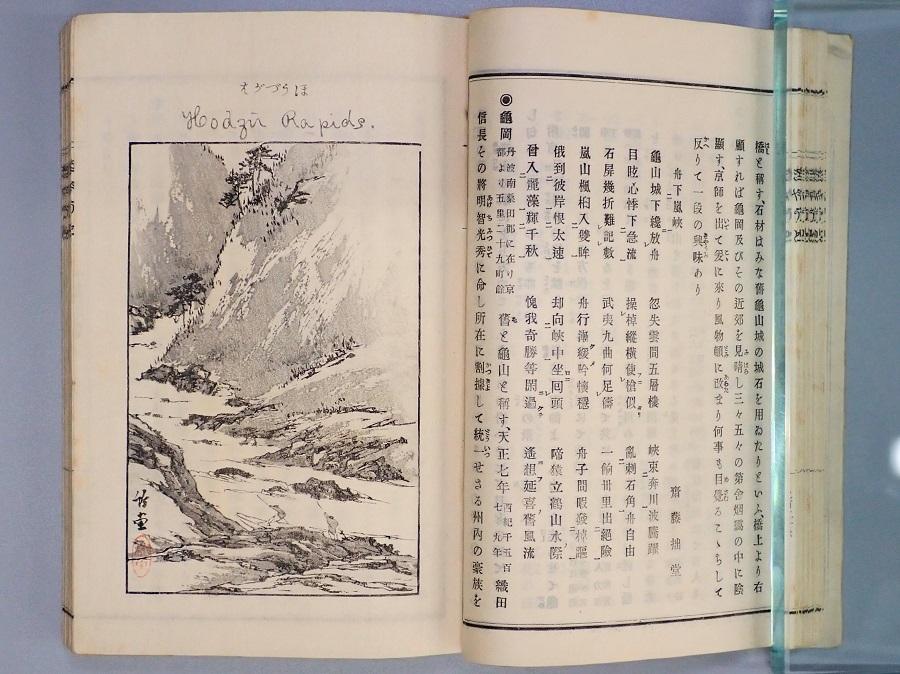 橋と称す、石材はみな舊龜山城の城石を用ゐたりといふ、橋上より右
顧すれば龜岡及びその近郊を見晴し三々五々の第舍烟靄の中に隱
顯す、京師を出て爰に來り風物頓に改まり何事も目覺るこゝちして
反りて一段の興味あり
舟下嵐峽 齋藤拙堂
龜山城下纔放舟 忽失雲間五層樓 峽束奔川波騰躍
目眩心悸下急流 操棹縱橫使愴似 亂刺石角舟自由
石屏幾折難記數 武夷九曲何足儔 一偷卅里出絕險
嵐山楓桕入雙眸 舟行漸緩吟懷穩 舟子間暇發棹謳
俄到彼岸恨太速 却向峽中坐回頭 啼猿立鶴山水際
曾入麗藻輝千秋 愧我奇勝等閑過 遙想延喜舊風流
◉龜岡 丹波南桑田郡に在り京都より五里二十九町餘 舊と龜山と稱す、天正七年 西紀千五百七九年 織田
信長その將明智光秀に命し所在に割據して統一せさる州內の豪族を
ほづがは
Hodzu Rapids.